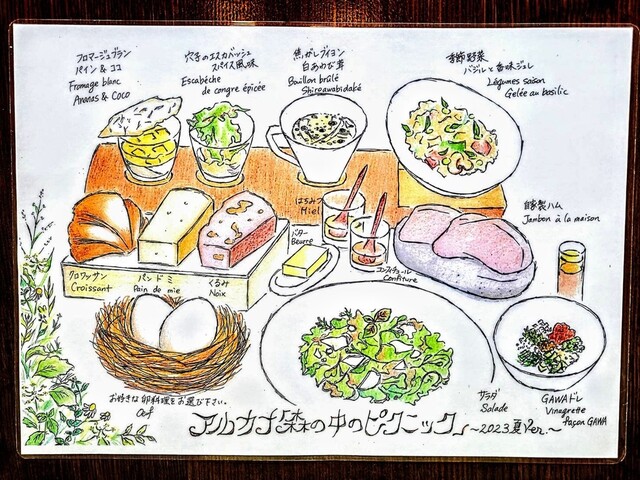 フロマージュブラン
パイン & ココ
Fromage blanc
Ananas & Coco
穴子のエスカベッシュ
スパイス風味
Escabèche
de congre épicée
焦がしブイヨン
白あわび茸
Bouillon brûlé
Shiroawabidaké
季節野菜
バジルと香味ジュレ
Légumes saison
Gelée au basilic
はちみつ
Hiel
自家製ハム
Jambon à la maison
バター
Beurre
コンフィチュール
Confiture
クロワッサン
Croissant
パン ド ミ
Pain de mie
くるみ
Noix
お好きな卵料理をお選び下さい。
Oef
サラダ
Salade
GAWAドレ
Vinaigrette
façon GAWA
アルカナ森の中のピクニック
~2023夏Ver.~